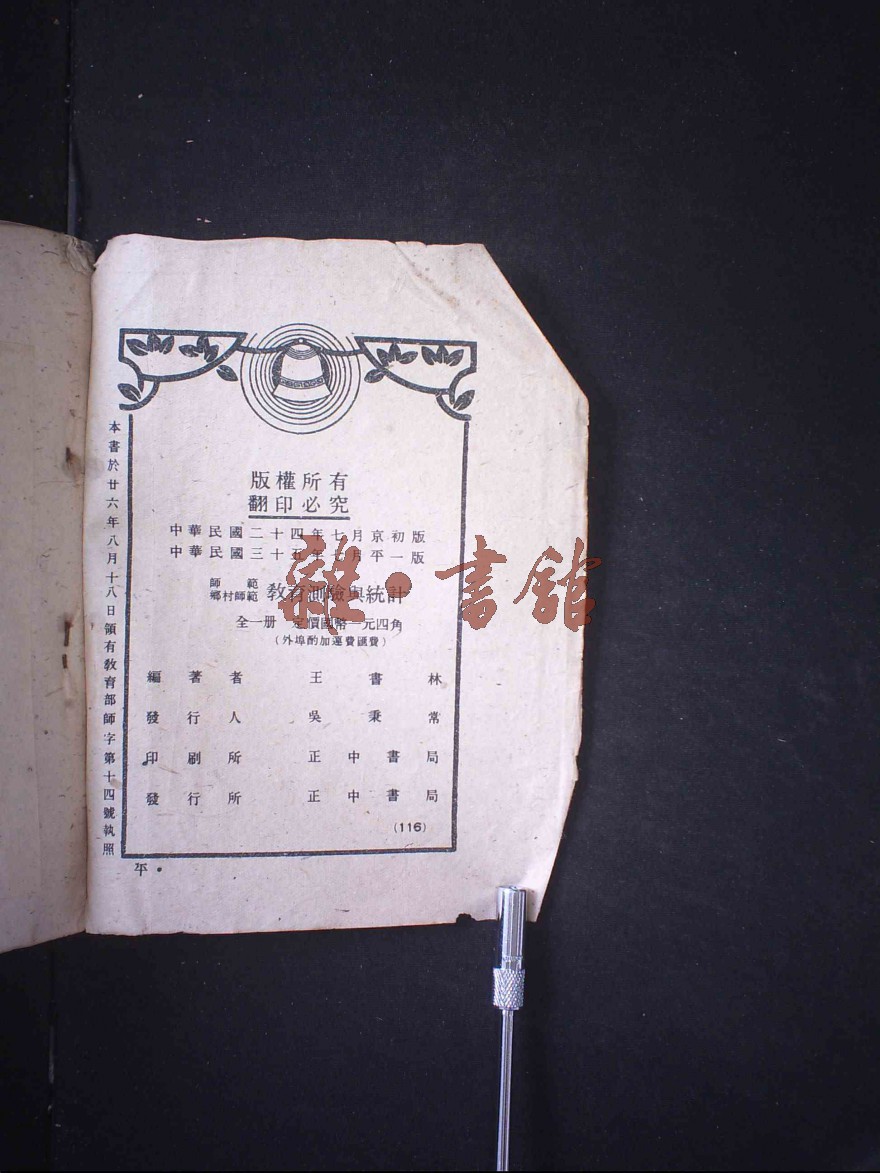 版權所有
翻印必究
中華民國二十四年七月京初版
中華民國三十五年七月平一版
師範
鄉村師範
教育測驗與統計
全一册 定價國幣一元四角
(外埠酌加運費匯費)
編著者 王書林
發行人 吳秉常
印刷所 正中書局
發行所 正中書局
(116)
本書於廿六年八月十八日領有教育部師字第十四號執照
平・
雜・書館